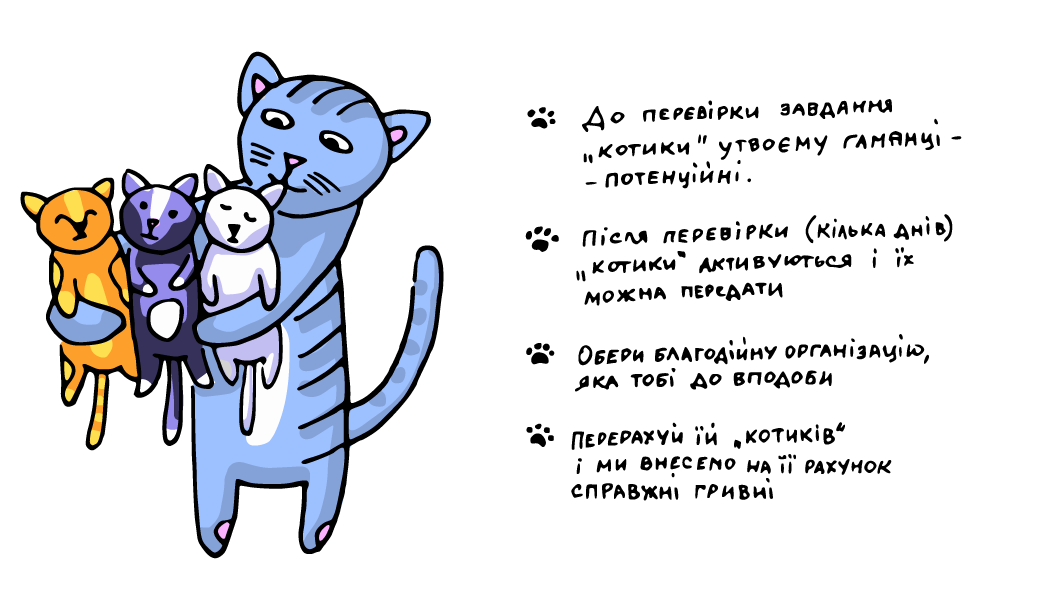 До перевірки завдання
„котики" утвоєму гаманці -
- потенційні.
Після перевірки (кілька днів)
„котики" активуються і їх
можна передати
Обери благодійну організацію,
яка тобі до вподоби
Перерахуй їй „котиків"
і ми внесемо на її рахунок
справжні гривні